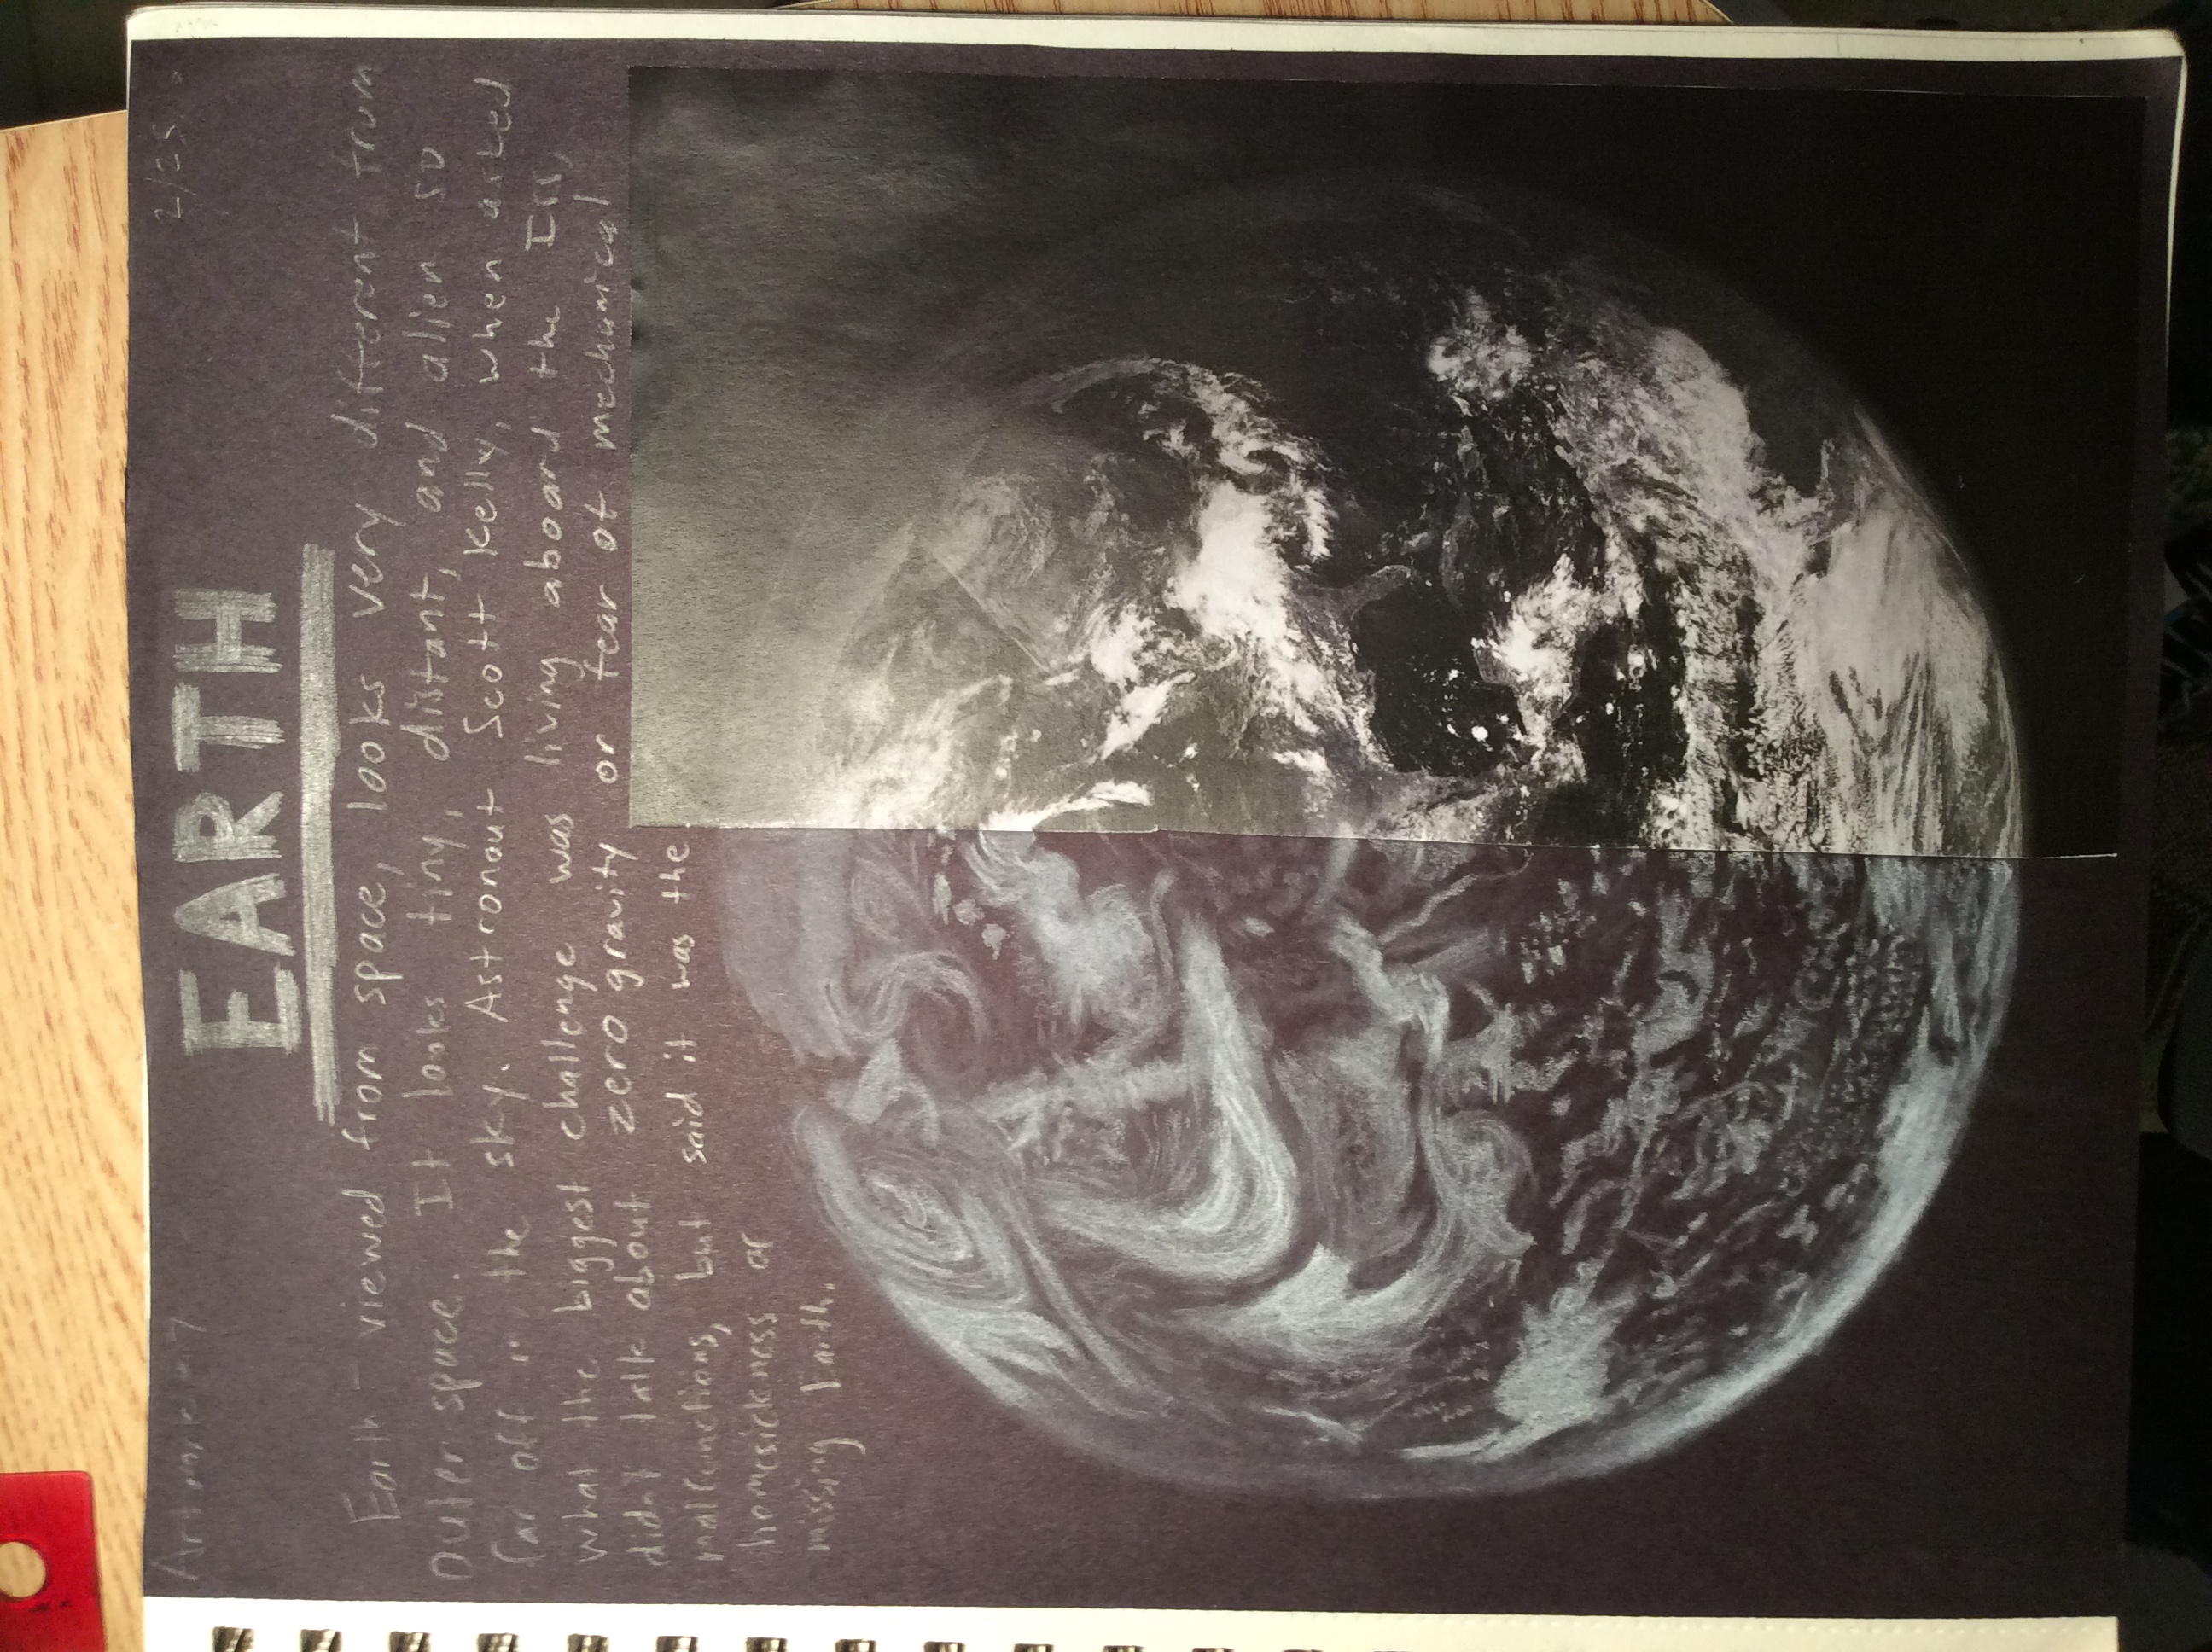 Artwork #7
2/25
EARTH
Earth - viewed from space, looks very different from
Outer space. It looks tiny, distant, and alien so
far off in the sky. Astronaut Scott Kelly, when asked
what the biggest challenge was living aboard the ISS,
didn't talk about zero gravity or fear of mechanical
malfunctions, but said it was the
homesickness or
missing Earth.